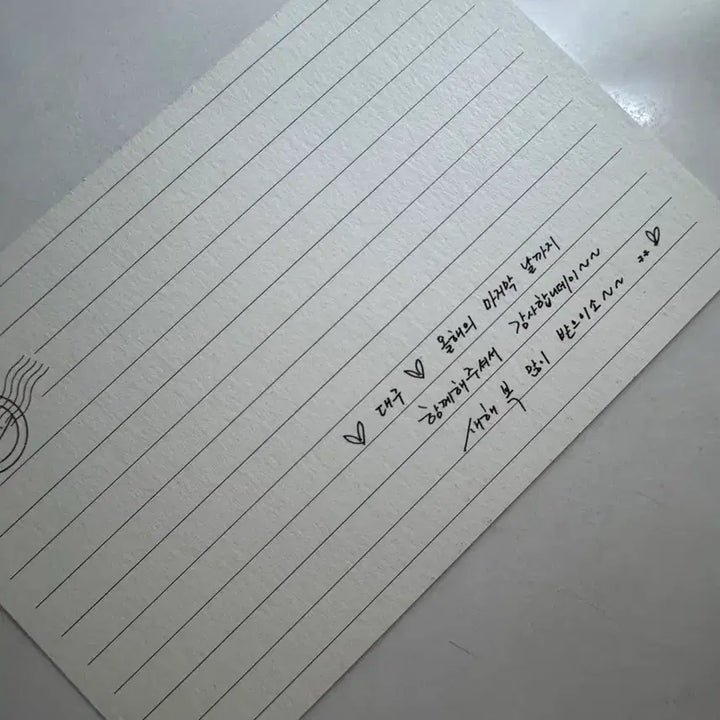 ♡ 대구 ♡ 올해의 마지막 날까지
함께해주셔서 감사합니데이~~
새해 복 많이 받으이소~~ ^^ ♡